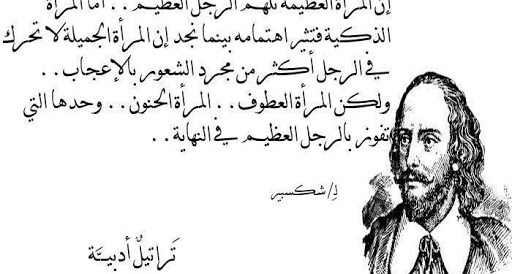 إن المرأة العظيمة تلهم الرجل العظيم . . أما المرأة
الذكية فتثير اهتمامه بينما نجد إن المرأة الجميلة لا تحرك
في الرجل أكثر من مجرد الشعور بالإعجاب . .
ولكن المرأة العطوف . . المرأة الحنون . . وحدها التي
تفوز بالرجل العظيم في النهاية . .
لـ/ شكسبير
تَراتيلٌ أدبيَّة